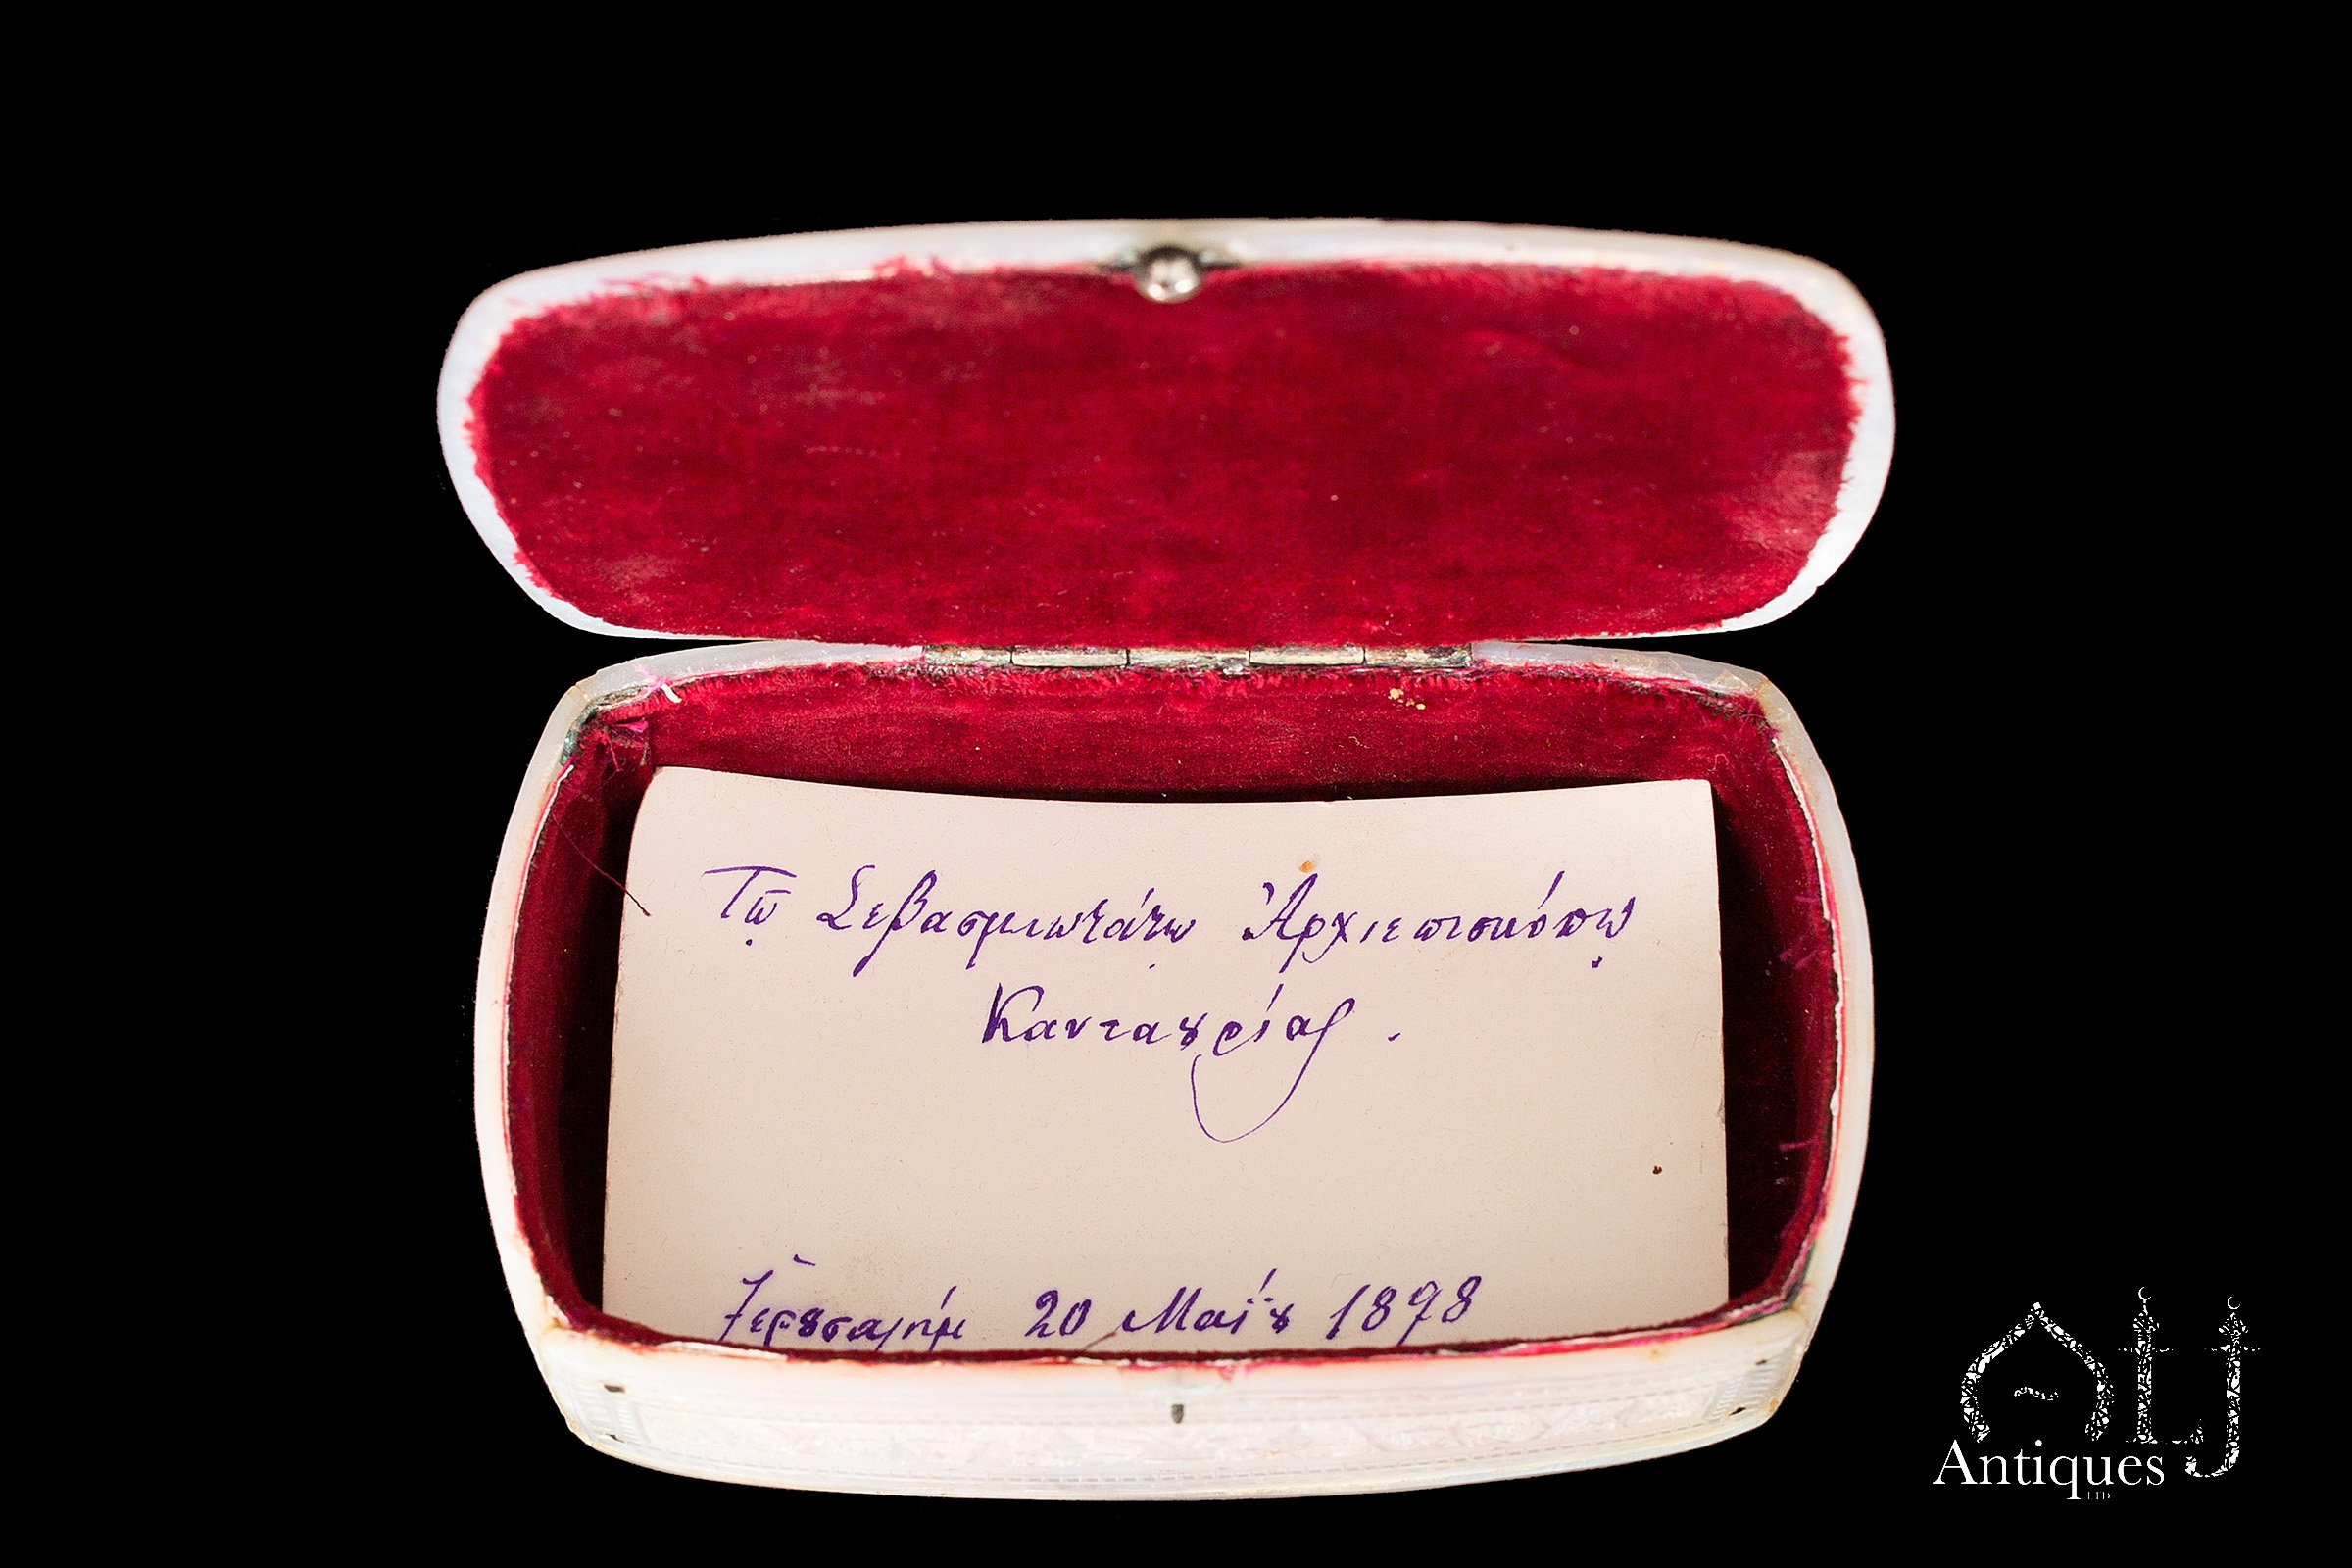 Τῷ Σεβασμιωτάτῳ Ἀρχιεπισκόπῳ
Κανταȣρίας.
Ἱερȣσαλήμ 20 Μαΐȣ 1898
ALJ
Antiques
LTD